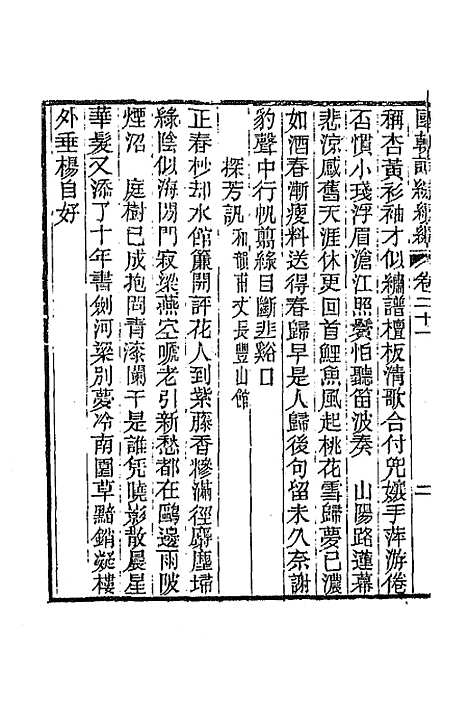 國朝詞綜續編 卷二十一 二
稱杏黃衫袖才似繡譜檀板清歌合付兜孃手萍游倦
否慣小琖浮眉滄江照鬢怕聽笛波奏 山陽路蓮幕
悲涼感舊天涯休更回首鯉魚風起桃花雪歸夢已濃
如酒春漸瘦料送得春歸早是人歸後句留未久奈謝
豹聲中行帆翦綠目斷悲谿口
探芳訊和韻甫丈長豐山館
正春杪却水館簾開評花人到紫藤香慘滿徑麝塵埽
綠陰似海閉門寂梁燕空嗁老引新愁都在鷗邊雨陂
煙沼 庭樹已成抱問青漆闌干是誰凭曉影散晨星
華髮又添了十年書劍河梁別夢冷南園草黯銷凝樓
外垂楊自好